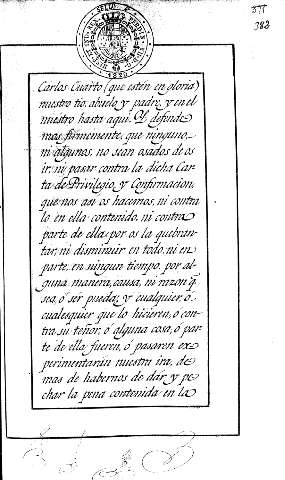 377
382
1830
Carlos Cuarto (que estén en gloria)
nuestro tio, abuelo y padre, y en el
nuestro hasta aqui. Y defende
mos firmemente, que ninguno,
ni algunos, no sean osados de os
ir, ni pasar contra la dicha Car
ta de Privilegio y Confirmacion,
que nos asi os hacemos, ni contra
lo en ella contenido, ni contra
parte de ella por os la quebran
tar, ni disminuir en todo, ni en
parte, en ningun tiempo, por al
guna manera, causa, ni razon q.
sea, ó ser pueda; y cualquier, ó
cualesquier que lo hicieren, ó con
tra su tenor, ó alguna cosa, ó par
te de ella fueren, ó pasaren ex
perimentarán nuestra ira, de
mas de habernos de dár, y pe
char la pena contenida en la